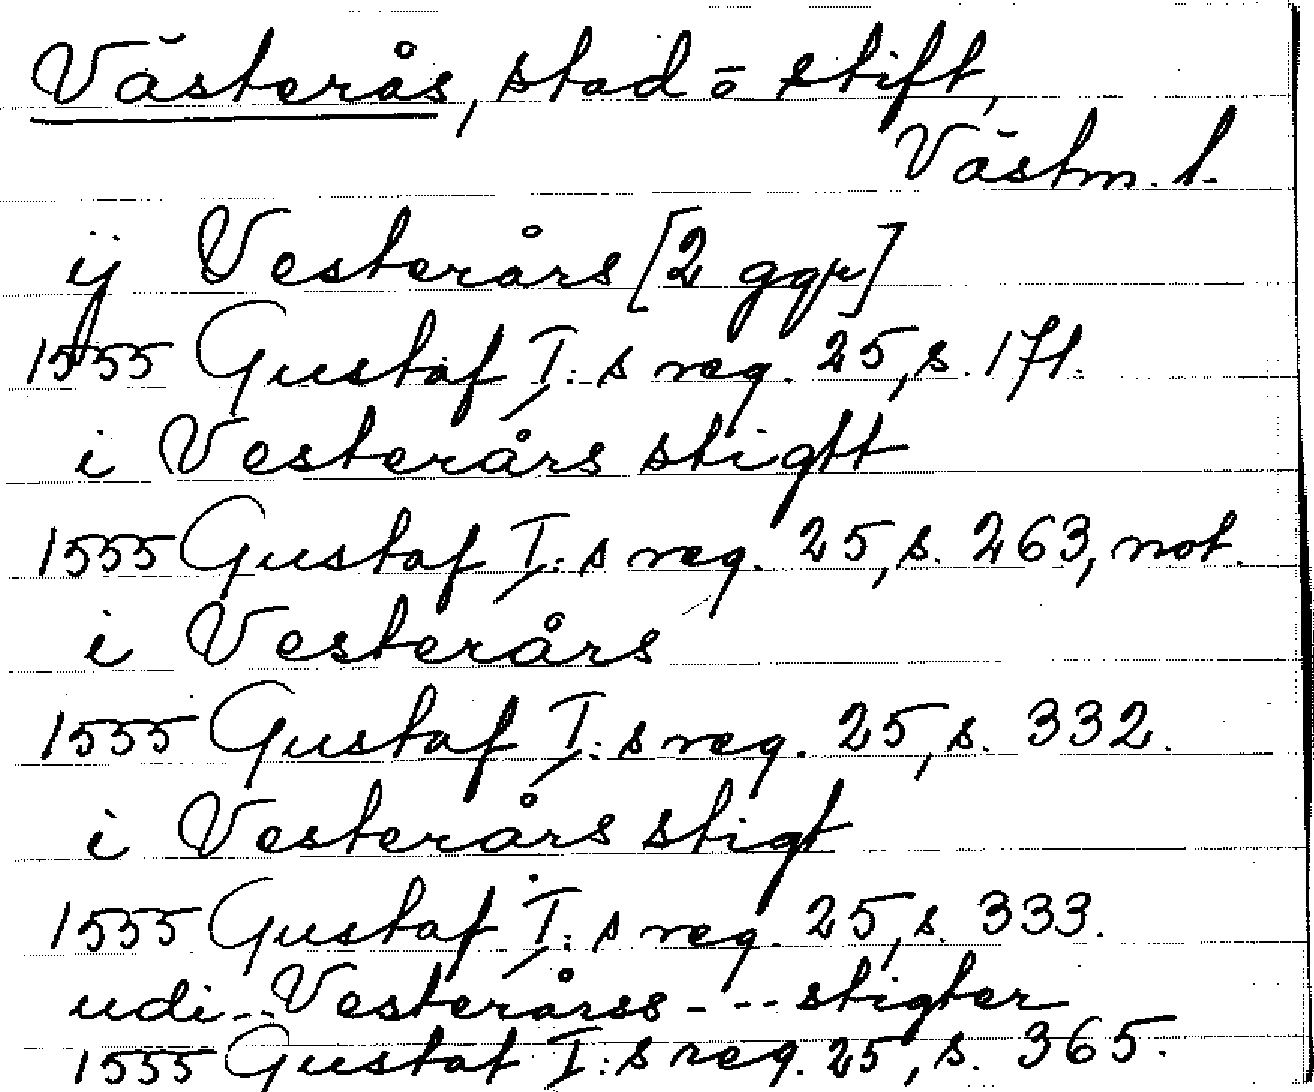 Västerås, stad o stift,
Västm. l.
ij Vesterårs [2 ggr]
1555 Gustaf I:s reg. 25, s. 171.
i Vesterårs stigtt
1555 Gustaf I:s reg. 25, s. 263, not.
i Vesterårs
1555 Gustaf I:s reg. 25, s. 332.
i Vesterårs stigt
1555 Gustaf I:s reg. 25, s. 333.
udi -- Vesterårss --- stigter
1555 Gustaf I:s reg. 25, s. 365.